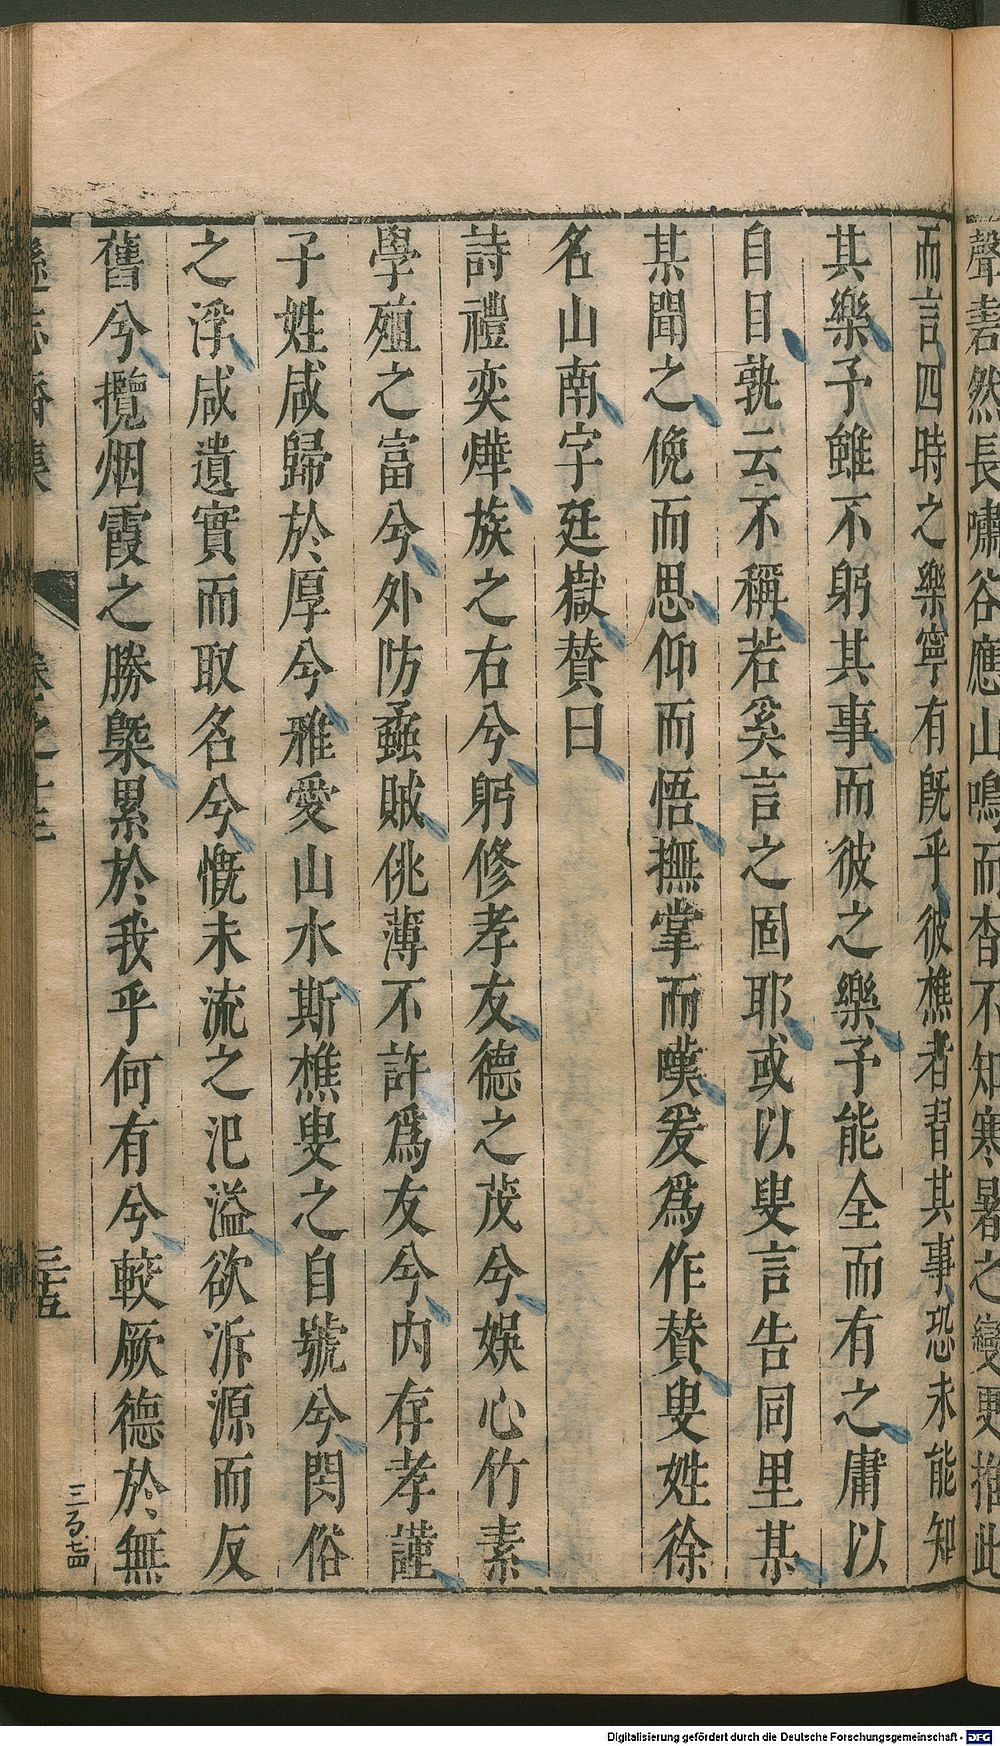 聲砉然長嘯谷應山鳴而杳不知寒暑之變更推此
而言四時之樂寧有旣乎彼樵者習其事恐未能知
其樂予雖不躬其事而彼之樂予能全而有之庸以
自目孰云不稱若奚言之固耶或以叟言告同里某
某聞之俛而思仰而悟撫掌而嘆爰爲作賛叟姓徐
名山南字廷嶽賛曰
詩禮奕燁族之右兮躬修孝友德之茂兮娛心竹素
學殖之富兮外防蟊賊佻薄不許爲友兮內存孝謹
子姓咸歸於厚兮雅愛山水斯樵叟之自號兮閔俗
之浮咸遺實而取名兮慨末流之氾溢欲泝源而反
舊兮攬烟霞之勝槩累於我乎何有兮較厥德於無
遜志齋集 卷之十三 三十五
三百.十四
Digitalisierung gefördert durch die Deutsche Forschungsgemeinschaft - DFG